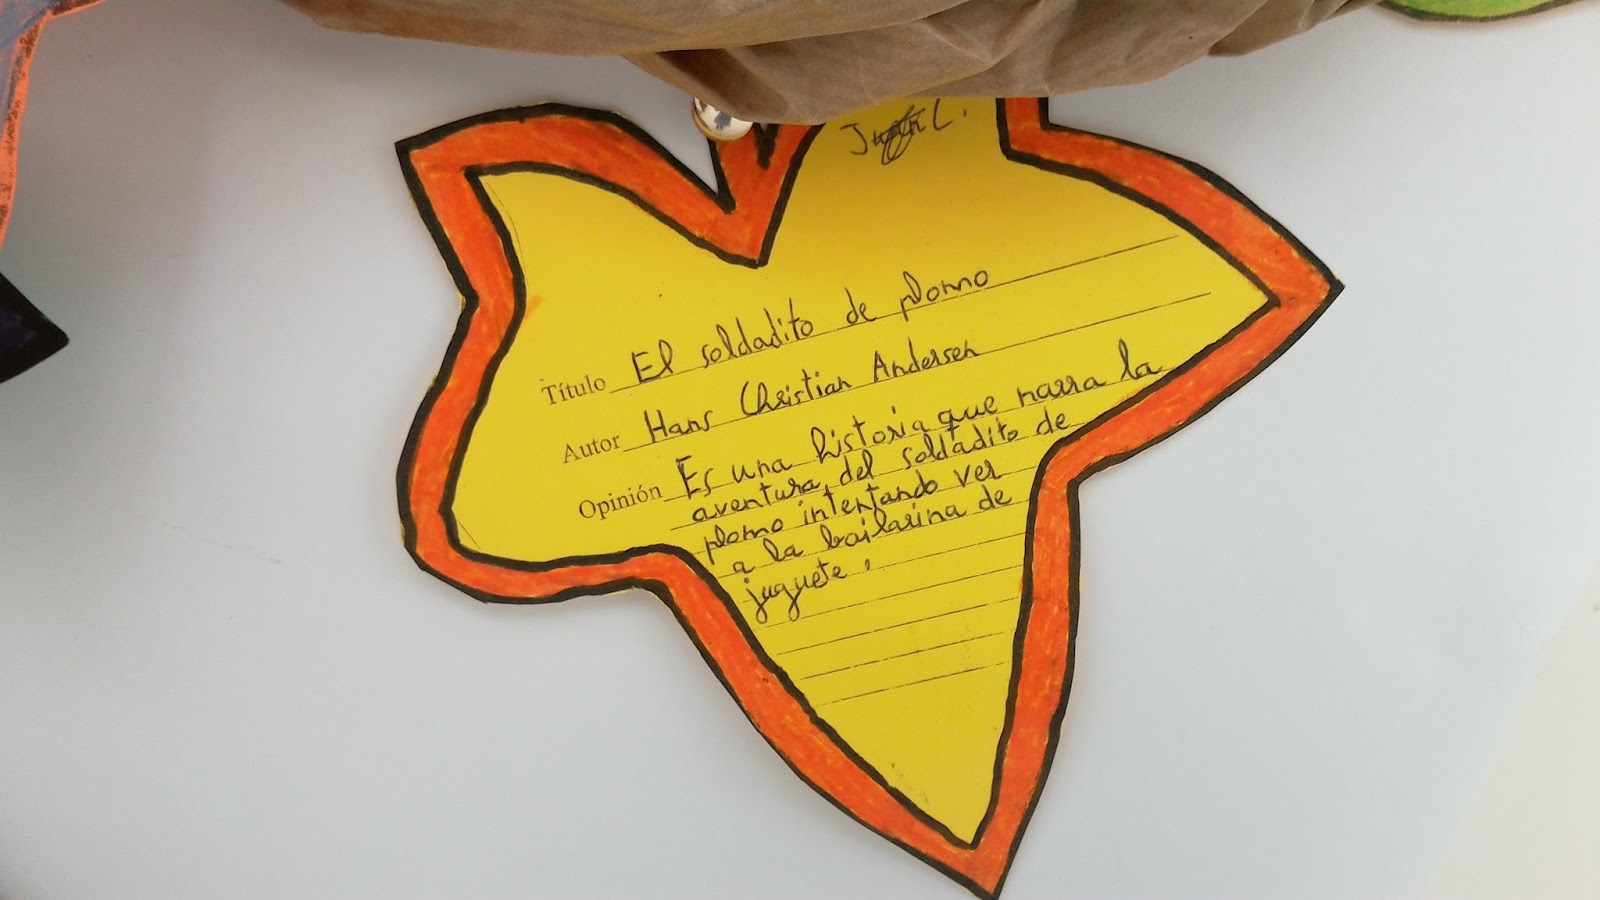 Juan L.
Título El soldadito de plomo
Autor Hans Christian Andersen
Opinión Es una historia que narra la
aventura del soldadito de
plomo intentando ver
a la bailarina de
juguete.